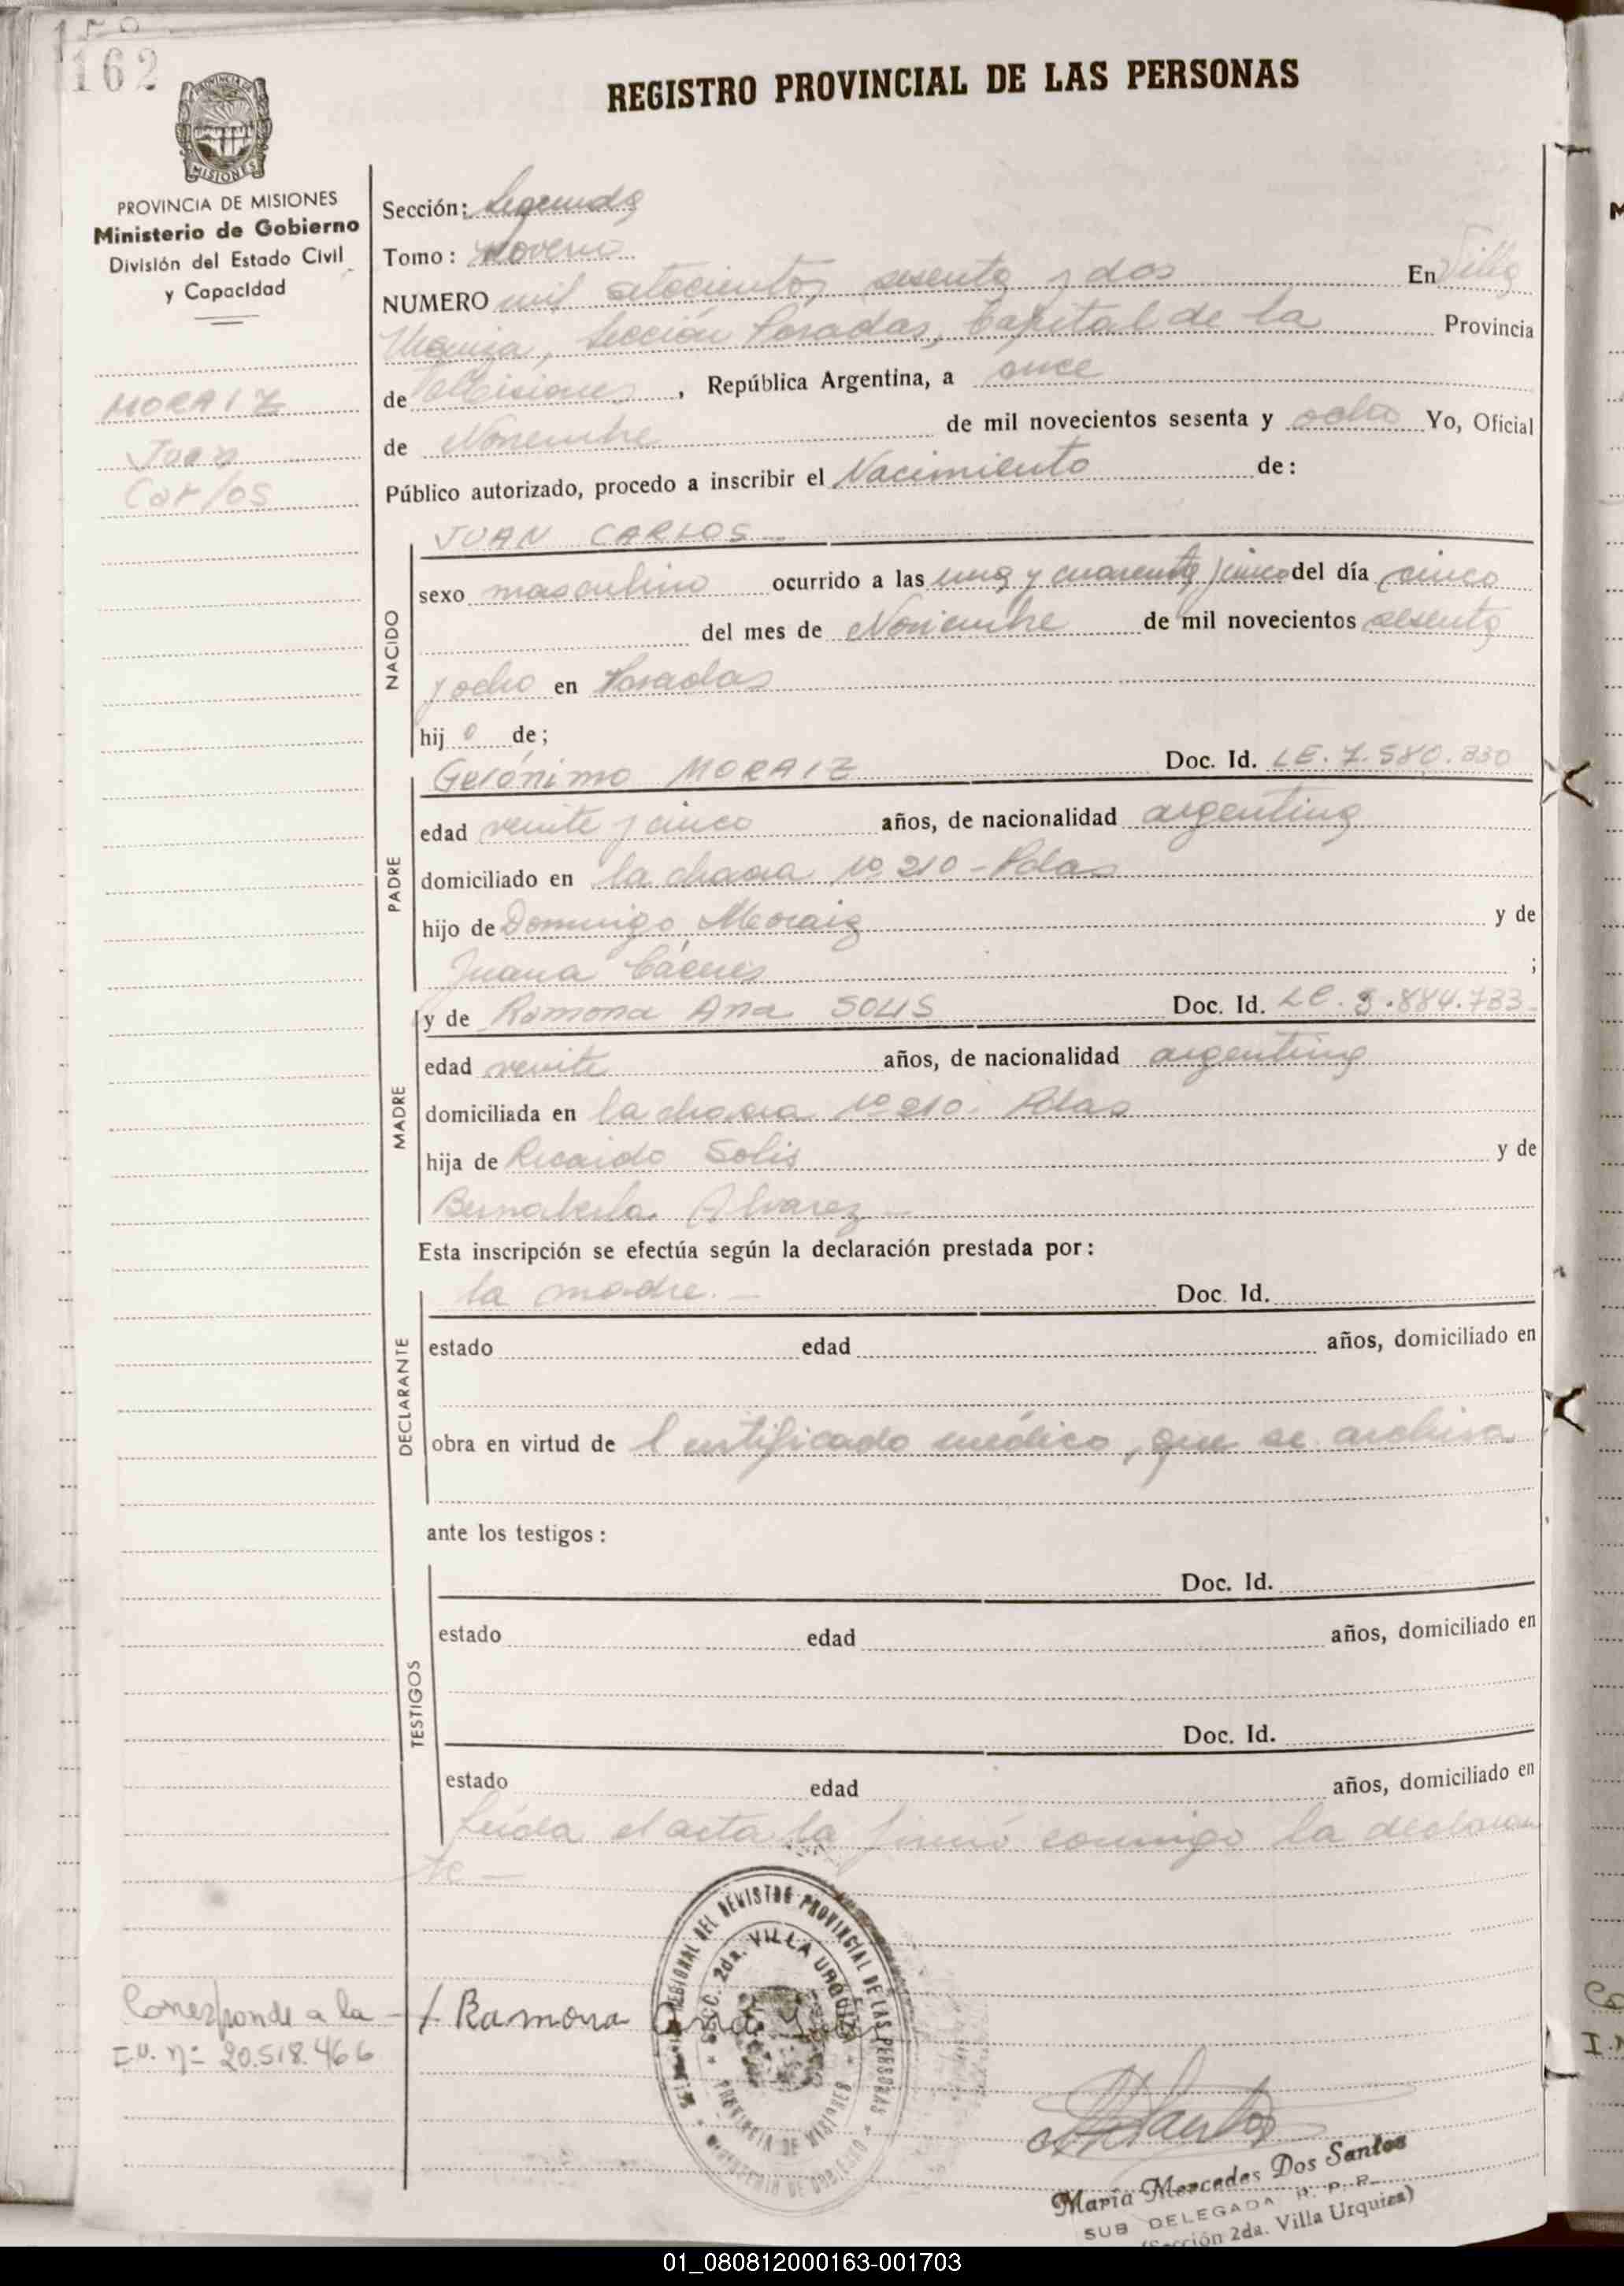 162
REGISTRO PROVINCIAL DE LAS PERSONAS
MISIONES
PROVINCIA DE MISIONES
Ministerio de Gobierno
División del Estado Civil
y Capacidad
MORAIZ
Juan
Carlos
Sección: Segunda
Tomo: Noveno
NUMERO mil setecientos sesenta y dos En Villa
Urquiza, Sección Posadas, Capital de la Provincia
de Misiones, República Argentina, a once
de Noviembre de mil novecientos sesenta y ocho Yo, Oficial
Público autorizado, procedo a inscribir el Nacimiento de:
JUAN CARLOS
NACIDO
sexo masculino ocurrido a las una y cuarenta y cinco del día cinco
del mes de Noviembre de mil novecientos sesenta
y ocho en Posadas
hij o de;
PADRE
Gerónimo MORAIZ Doc. Id. LE. 7.580.830
edad veinte y cinco años, de nacionalidad argentina
domiciliado en la chacra nº 210 - Pdas
hijo de Domingo Moraiz y de
Juana Cáceres ;
MADRE
y de Ramona Ana SOLIS Doc. Id. LC. 5.884.733
edad veinte años, de nacionalidad argentina
domiciliada en la chacra nº 210. Pdas
hija de Ricardo Solis y de
Alvarez
Esta inscripción se efectúa según la declaración prestada por:
DECLARANTE
la madre. - Doc. Id.
estado edad años, domiciliado en
obra en virtud de Certificado médico, que se archiva
ante los testigos:
TESTIGOS
Doc. Id.
estado edad años, domiciliado en
Doc. Id.
estado edad años, domiciliado en
Leída el acta la firmó conmigo la declaran
te -
REGIONAL DEL REGISTRO PROVINCIAL DE LAS PERSONAS
SECC. 2da. VILLA URQUIZA
PROVINCIA DE MISIONES
MINISTERIO DE GOBIERNO
Corresponde a la
I.U. nº 20.518.466
Ramona Ana
María Mercedes Dos Santos
SUB DELEGADA R. P. P.
(Sección 2da. Villa Urquiza)
01_080812000163-001703